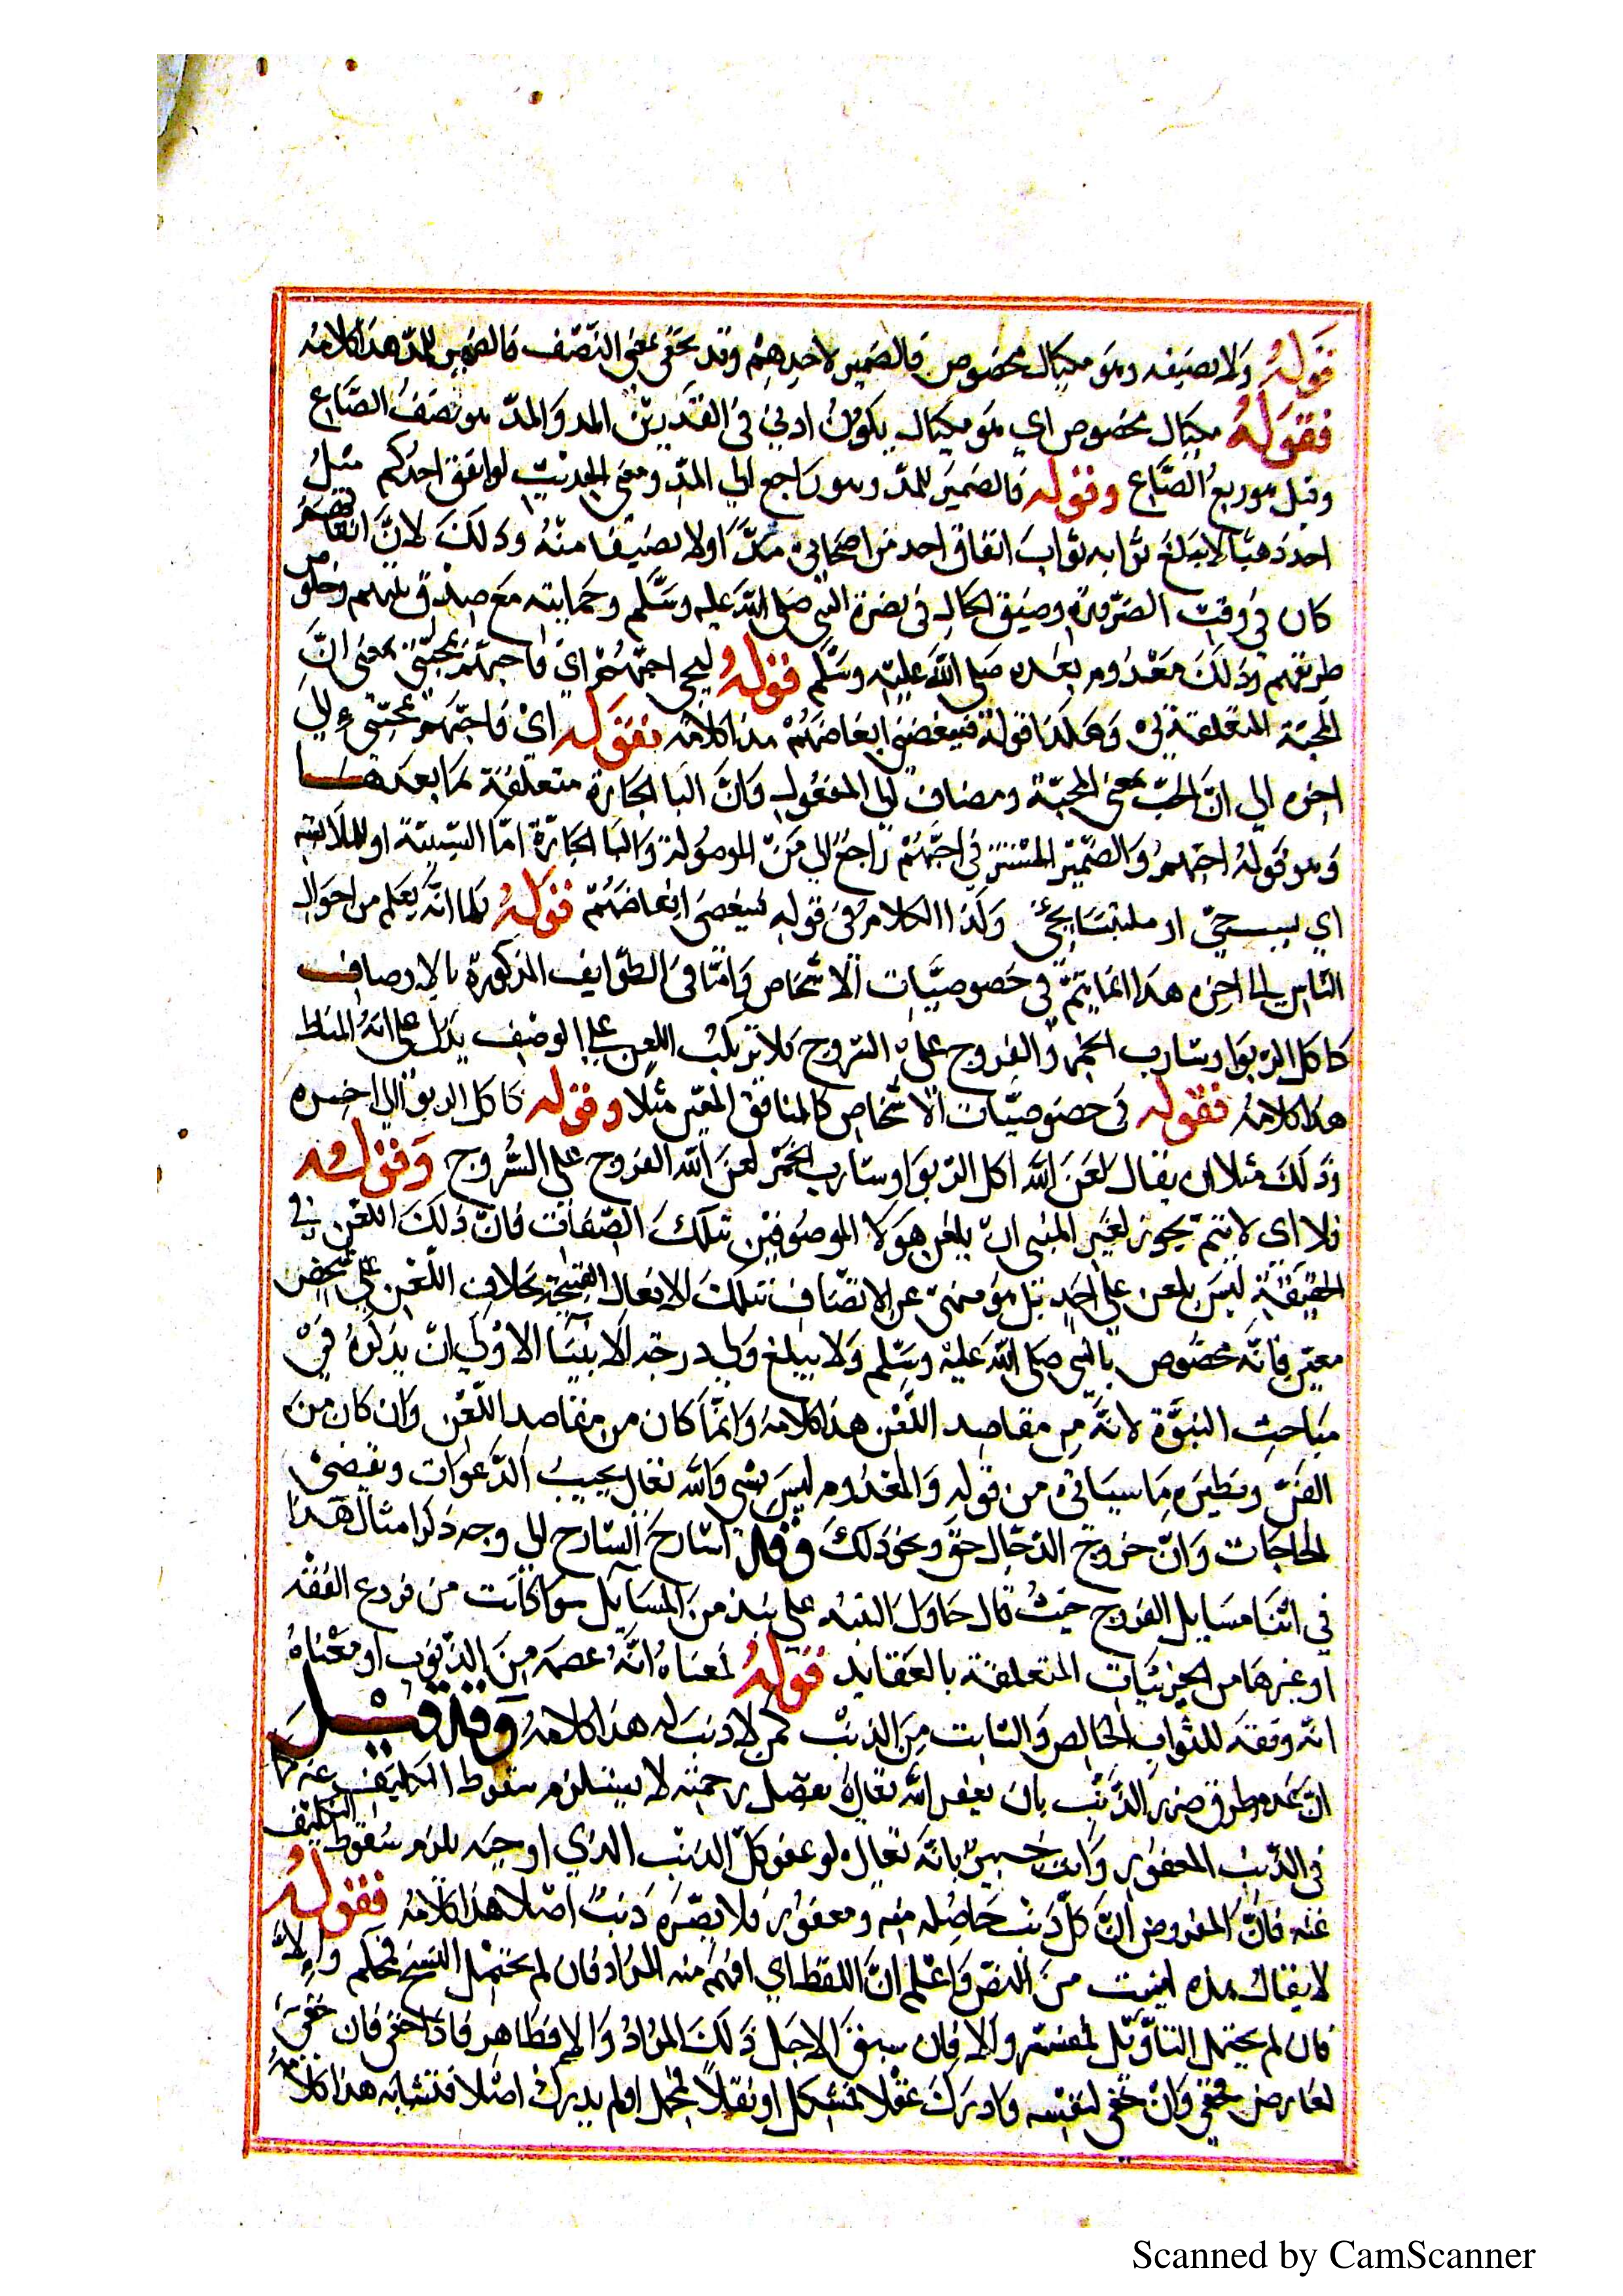 قوله ولا نصيفه وهو مكيال مخصوص فالضمير لاحدهم وقد يجئ بمعنى النصف فالضمير للمد هذا كلامه
فقوله مكيال مخصوص اي هو مكيال يكون ادنى في القدر من المد والمد هو نصف الصاع
وقيل هو ربع الصاع وقوله فالضمير للمد وهو راجع الي المد ومعنى الحديث لو انفق احدكم مثل
احد ذهبا لا يبلغ ثوابه ثواب انفاق احد من اصحابي مدا او لا نصيفا منه وذلك لان انفاقهم
كان في وقت الضرورة وضيق الحال في نصرة النبي صلى الله عليه وسلم وحمايته مع صدق نيتهم وخلوص
طريقتهم وذلك معدوم بعده صلى الله عليه وسلم قوله فبحبي احبهم اي فاحبهم بمحبتي بمعنى ان
المحبة المتعلقة بي وهكذا قوله فببغضي ابغضهم هذا كلامه فقوله اي فاحبهم بمحبتي الي
اخره الي ان الحب بمعنى المحبة ومضاف الي المفعول وان البا الجارة متعلقة بما بعدها
وهو قوله احبهم والضمير المستتر في احبهم راجع الي من الموصولة والبا الجارة اما السببية او للملابسة
اي بسبب حبي او ملتبسا بحبي وكذا الكلام في قوله فببغضي ابغضهم قوله لما انه يعلم من احوال
الناس الي اخره هذا انما يتم في خصوصيات الاشخاص واما في الطوايف المذكورة بالاوصاف
كاكل الربوا وشارب الخمر والفروج على السروج فلا ترتب اللعن على الوصف يدل على انه المناط
هذا كلامه فقوله في خصوصيات الاشخاص كالمنافق المعين مثلا وقوله كاكل الربوا الي اخره
وذلك مثلا ان يقال لعن الله اكل الربوا وشارب الخمر لعن الله الفروج على السروج وقوله
فلا اي لا يتم يجوز لغير النبي ان يلعن هولا الموصوفين بتلك الصفات فان ذلك اللعن في
الحقيقة ليس بلعن على احد بل هو منهي عن الاتصاف بتلك الافعال القبيحة بخلاف اللعن على شخص
معين فانه مخصوص بالنبي صلى الله عليه وسلم ولا يبلغ ولي درجة الانبيا الاولي ان يذكره في
مباحث النبوة لانه من مقاصد اللعن هذا كلامه وانما كان من مقاصد اللعن وان كان من
الفن ونظيره ما سيأتي من قوله والمعدوم ليس بشي والله تعالى يجيب الدعوات ويقضي
الحاجات وان خروج الدجال حق ونحو ذلك وقد اشار الشارح الي وجه ذكر امثال هذا
في اثنا مسايل الفروج حيث قال حاول التنبيه على نبذ من المسايل سوا كانت من فروع الفقه
او غيرها من الجزئيات المتعلقة بالعقايد قوله فمعناه انه عصمه من الذنوب او معناه
انه وفقه للثواب الخالص والتايب من الذنب كمن لا ذنب له هذا كلامه وقد قيل
ان عدم طروق ضرر الذنب بان يغفر الله تعالى بفضل رحمته لا يستلزم سقوط التكليف عنه كما
في الذنب المغفور وانت خبير بانه تعالى لو عفو كل الذنب الذي اوجبه يلزم سقوط التكليف
عنه فان المفروض ان كل ذنب حاصله منه ومعفور فلا يضره ذنب اصلا هذا كلامه فقوله
لا يقال هذه ليست من النص واعلم ان اللفظ اي افهم منه المراد فان لم يحتمل النسخ فمحكم والا
فان لم يحتمل التاويل فمفسر والا فان سيق لاجل ذلك المراد والا فظاهر فاذا خفي فان خفي
لعارض فخفي وان خفي لنفسه وادرك عقلا فمشكل او نقلا فمجمل او لم يدرك اصلا فمتشابه هذا كلامه
Scanned by CamScanner